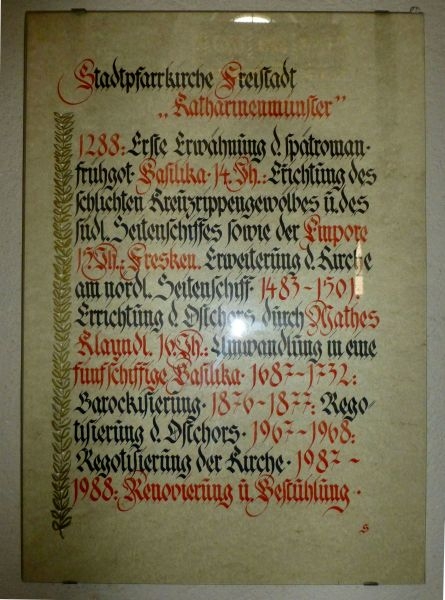 Stadtpfarrkirche Freistadt
„Katharinenmünster"
1288: Erste Erwähnung d. spätroman-
frühgot. Basilika · 14. Jh.: Erichtung des
schlichten Kreuzrippengewölbes u. des
südl. Seitenschiffes sowie der Empore
15. Jh.: Fresken. Erweiterung d. Kirche
am nördl. Seitenschiff · 1483-1501:
Errichtung d. Ostchors durch Mathes
Klayndl. 16. Jh.: Umwandlung in eine
fünfschiffige Basilika · 1687-1732:
Barockisierung · 1876-1877: Rego-
tisierung d. Ostchors · 1967-1968:
Regotisierung der Kirche · 1987-
1988: Renovierung u. Bestuhlung ·
S